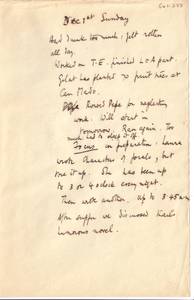 Dec 1st Sunday
Had drunk too much, felt rotten
all day.
Worked on T.E. finished L.O.A part.
Gelat has planted 30 fruit trees at
Can Medo.
Roused Pepe for neglecting
work. Will start in
tomorrow. Rain again. Too
much had to sleep it off.
Focus in preparation: Laura
wrote characters of jewels, but
tore it up. She has been up
to 3 or 4 o'clock every night.
Then wrote another. Up to 3.45am
After supper we discussed Karl's
humorous novel.